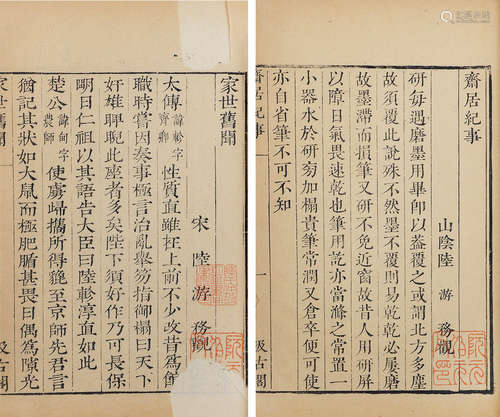 齋居紀事
山陰陸 游 務觀
研每過磨墨用畢卽以蓋覆之或謂北方多塵
故須覆此說殊不然墨不覆則易乾乾必屢磨
故墨滯而損筆又研不免近窗故昔人用研屏
以障日氣畏速乾也筆用訖亦當滌之常置一
小器水於研旁加榻貴筆常潤又倉卒便可使
亦自省筆不可不知
齋居紀事 一 汲古閣
家世舊聞
宋 陸 游 務觀
太傅諱軫字齊卿性質直雖在上前不少改昔爲館
職時嘗因奏事極言治亂舉笏指御榻曰天下
奸雄睥睨此座者多矣陛下須好作乃可長保
明日仁祖以其語告大臣曰陸軫淳直如此
楚公諱佃字農師使虜歸攜所得貔至京師先君言
猶記其狀如大鼠而極肥腯甚畏日偶爲隙光
家世舊聞 汲古閣